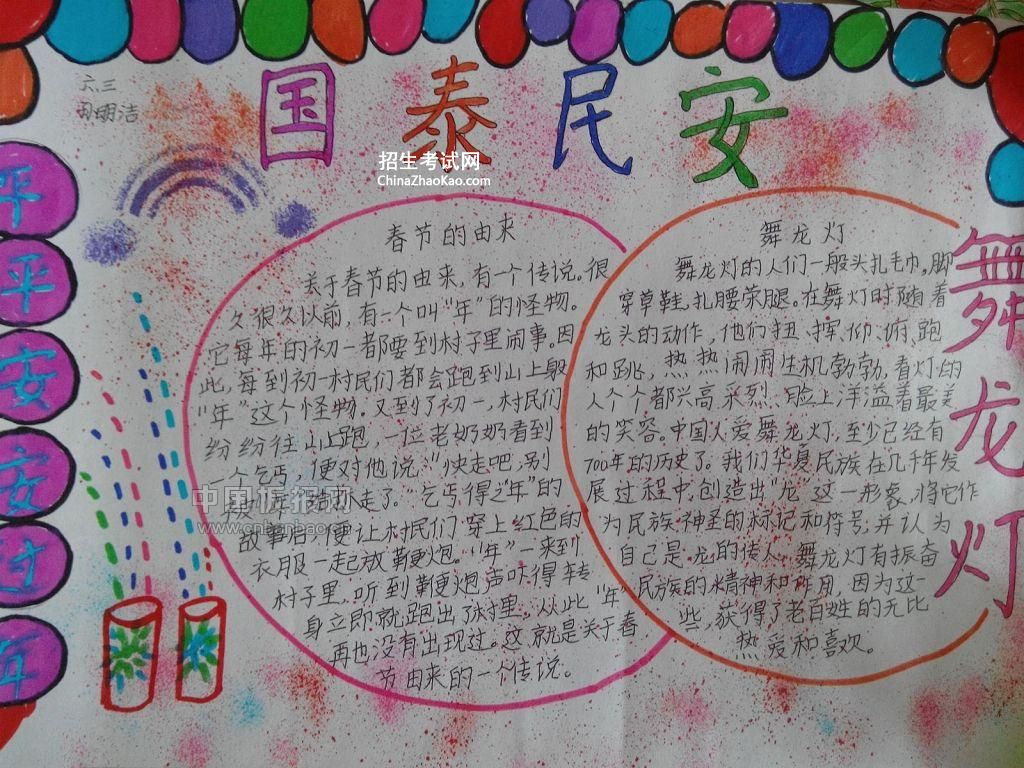 国泰民安
六.三
招生考试网
ChinaZhaoKao.com
平
平
安
安
过
年
春节的由来
关于春节的由来,有一个传说。很
久很久以前,有一个叫“年”的怪物。
它每年的初一都要到村子里闹事。因
此,每到初一村民们都会跑到山上躲
“年”这个怪物。又到了初一,村民们
纷纷往山上跑,一位老奶奶看到
一个乞丐,便对他说:“快走吧,别
走了。”乞丐得之“年”的
故事后,便让村民们穿上红色的
衣服一起放鞭炮。“年”一来到
村子里,听到鞭炮声吓得转
身立即就跑出了村里。从此“年”
再也没有出现过。这就是关于春
节由来的一个传说。
舞龙灯
舞龙灯的人们一般头扎毛巾,脚
穿草鞋,扎腰荣腿。在舞灯时随着
龙头的动作,他们扭、挥、仰、俯、跑
和跳,热热闹闹生机勃勃,看灯的
人个个都兴高采烈、脸上洋溢着最美
的笑容。中国人爱舞龙灯,至少已经有
700年的历史了。我们华夏民族在几千年发
展过程中,创造出“龙”这一形象,将它作
为民族神圣的标记和符号,并认为
自己是龙的传人。舞龙灯有振奋
民族的精神和作用,因为这一
些,获得了老百姓的无比
热爱和喜欢。
舞龙灯